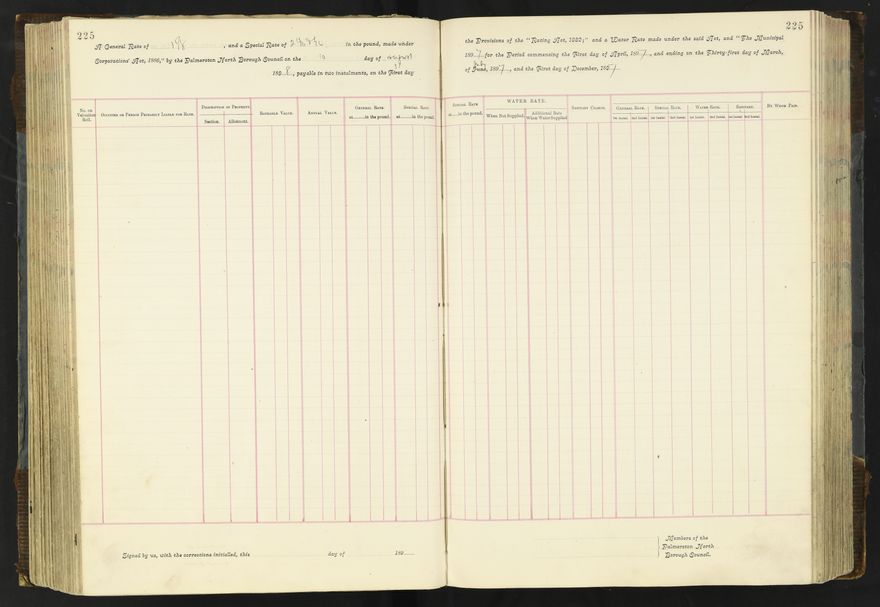 225
A General Rate of , and a Special Rate of in the pound, made under
Corporations' Act, 1886," by the Palmerston North Borough Council on the day of
189 8, payable in two instalments, on the First day
No. on Valuation Roll.
Occupier or Person Primarily Liable for Rate.
Description of Property.
Section. Allotment.
Rateable Value.
Annual Value.
General Rate at......in the pound.
Special Rate at......in the pound.
Signed by us, with the corrections initialled, this day of 189
225
the Provisions of the "Rating Act, 1882;" and a Water Rate made under the said Act, and "The Municipal
189 7 for the Period commencing the First day of April, 189 7, and ending on the Thirty-first day of March,
of June, 189 7, and the First day of December, 189 7.
Special Rate at......in the pound.
WATER RATE.
When Not Supplied.
Additional Rate When Water Supplied
Sanitary Charge.
General Rate. Special Rate. Water Rate. Sanitary.
1st Instal. 2nd Instal. 1st Instal. 2nd Instal. 1st Instal. 2nd Instal. 1st Instal. 2nd Instal.
By Whom Paid.
Members of the
Palmerston North
Borough Council.